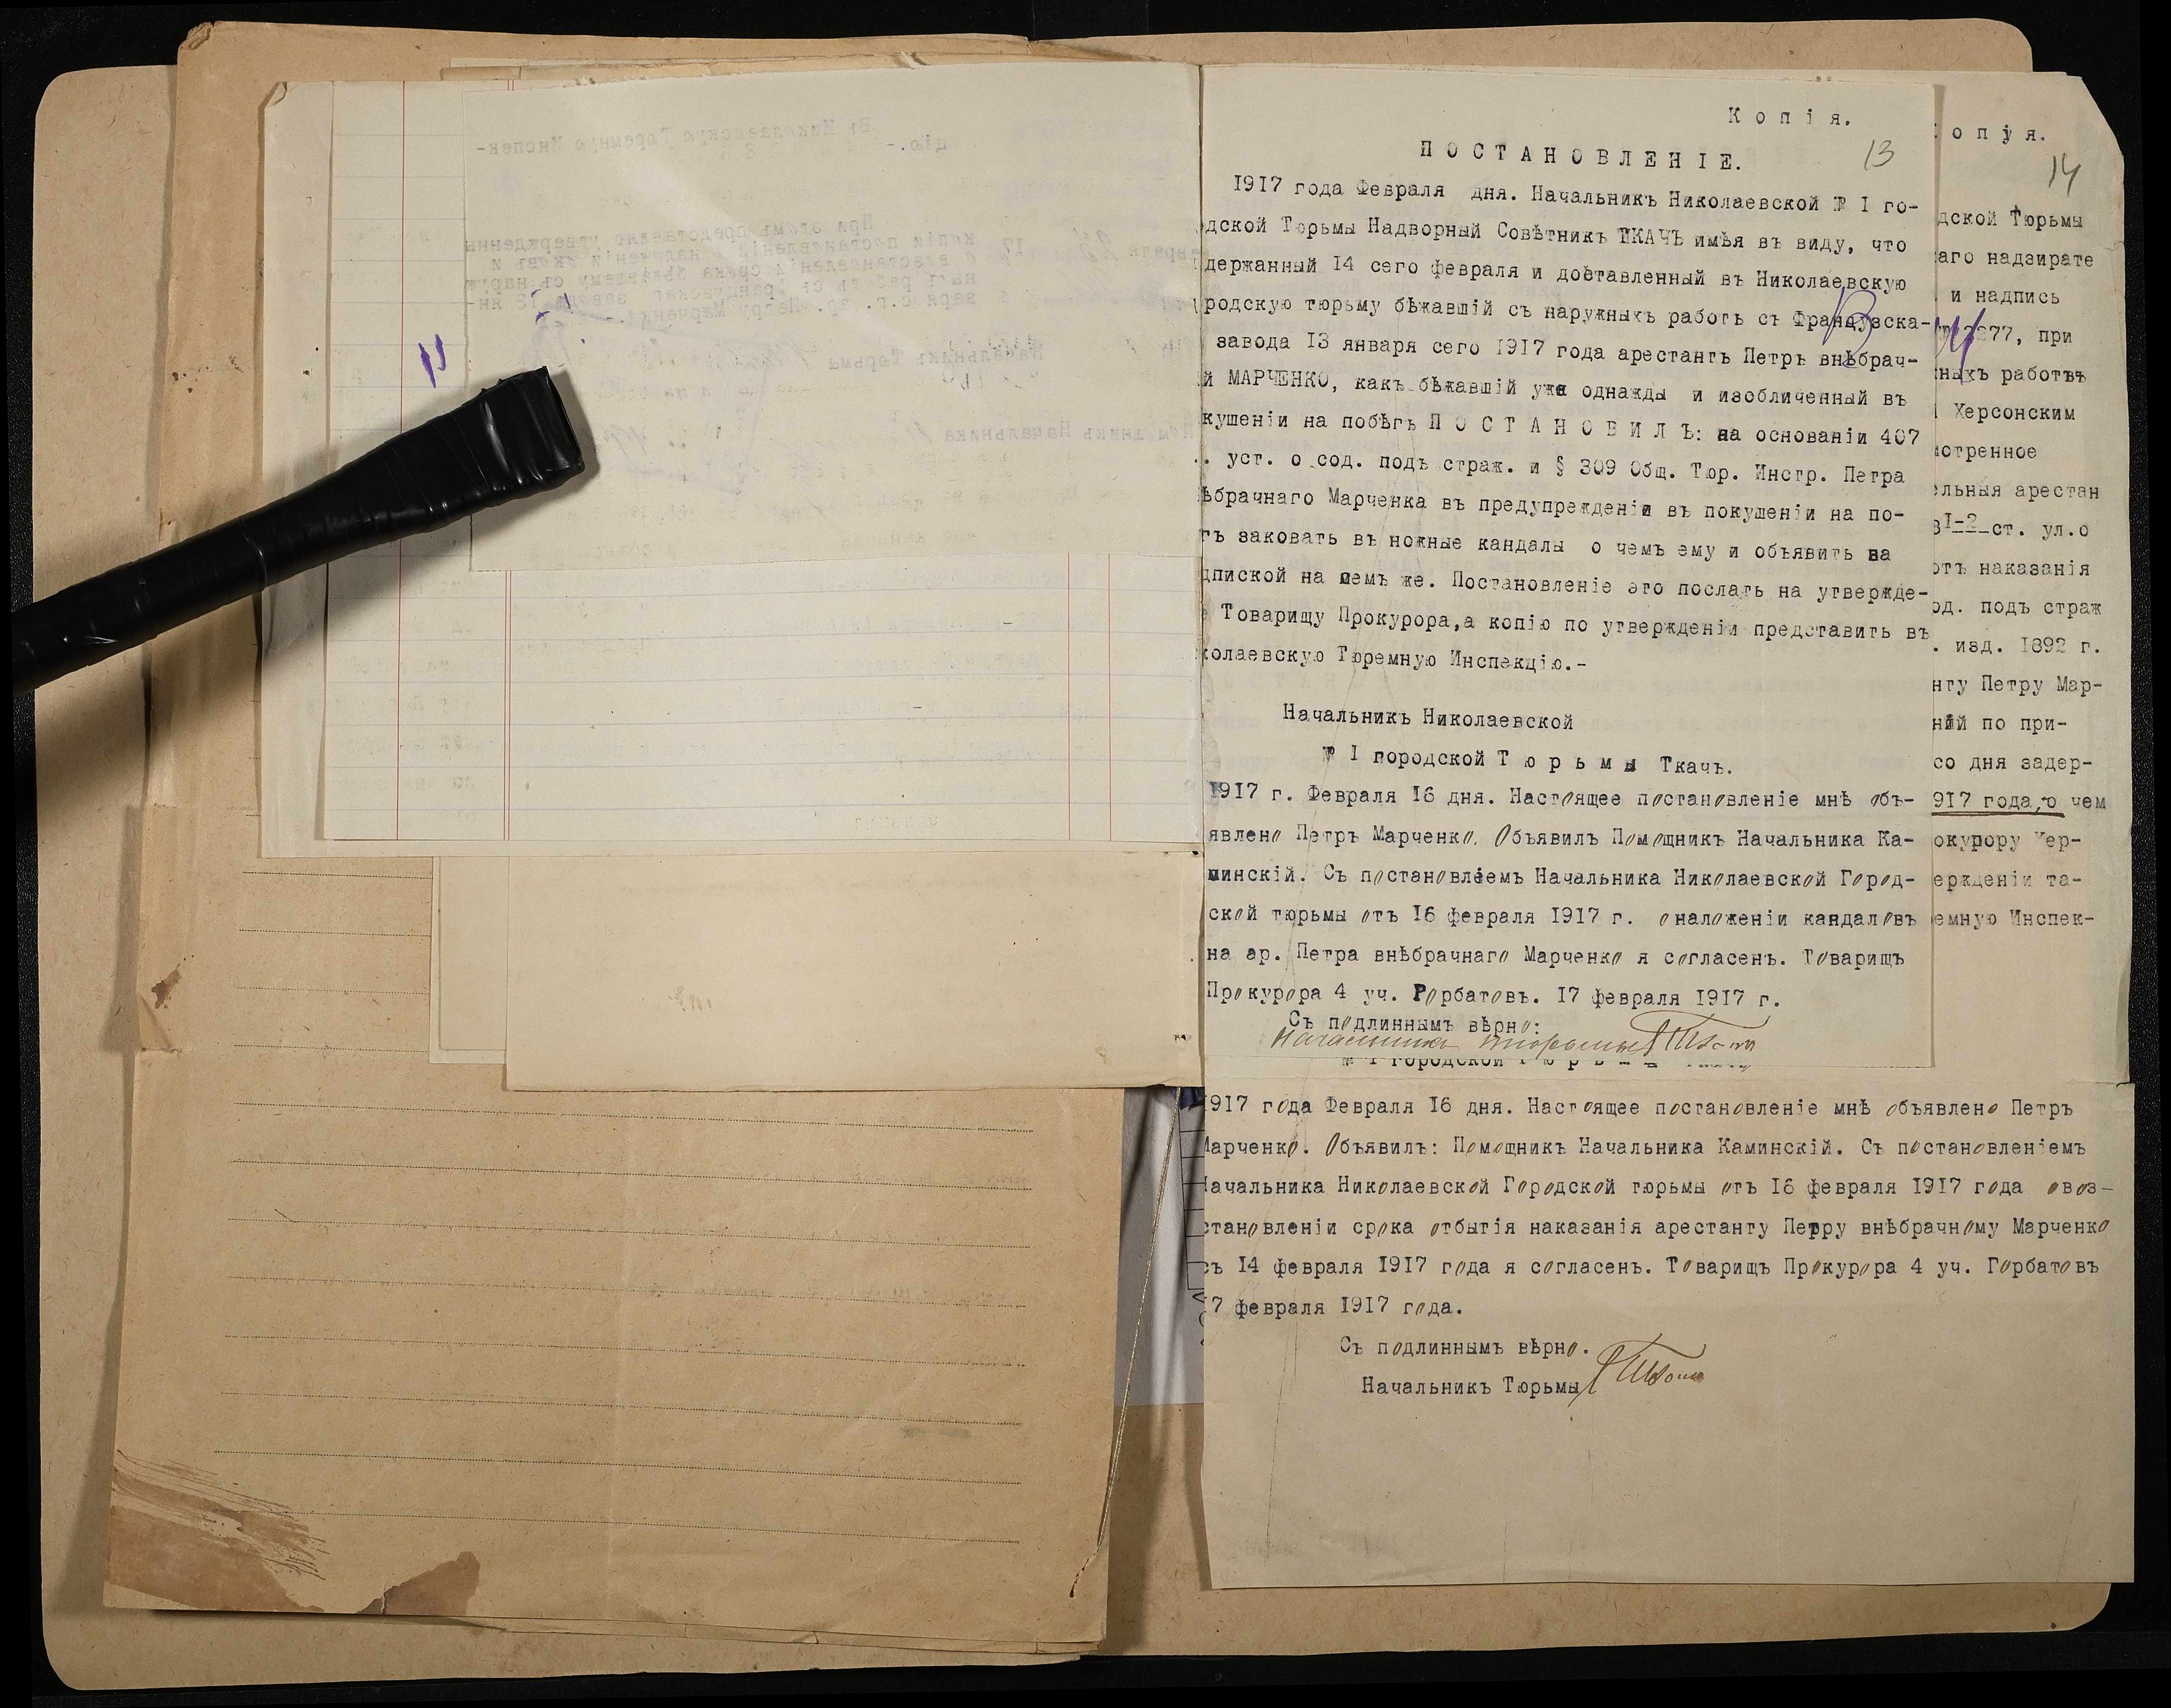 Копія.
13
ПОСТАНОВЛЕНІЕ.
1917 года Февраля дня. Начальникъ Николаевской № I го-
дской Тюрьмы Надворный Совѣтникъ ТКАЧЪ имѣя въ виду, что
держанный 14 сего февраля и доставленный въ Николаевскую
родскую тюрьму бѣжавшій съ наружныхъ работъ съ Французска-
завода 13 января сего 1917 года арестантъ Петръ внѣбрач-
й МАРЧЕНКО, какъ бѣжавшій уже однажды и изобличенный въ
кушеніи на побѣгъ ПОСТАНОВИЛЪ: на основаніи 407
. уст. о сод. подъ страж. и § 309 Общ. Тюр. Инстр. Петра
ѣбрачнаго Марченка въ предупрежденіи въ покушеніи на по-
гъ заковать въ ножные кандалы о чемъ ему и объявить на
дпиской на немъ же. Постановленіе это послать на утвержде-
Товарищу Прокурора,а копію по утвержденіи представить въ
колаевскую Тюремную Инспекцію.-
Начальникъ Николаевской
№ I городской Тюрьмы Ткачъ.
1917 г. Февраля 16 дня. Настоящее постановленіе мнѣ объ-
явлено Петръ Марченко. Объявилъ Помощникъ Начальника Ка-
минскій. Съ постановлѣемъ Начальника Николаевской Город-
ской тюрьмы отъ 16 февраля 1917 г. о наложеніи кандаловъ
на ар. Петра внѣбрачнаго Марченко я согласенъ. Товарищъ
Прокурора 4 уч. Горбатовъ. 17 февраля 1917 г.
Съ подлиннымъ вѣрно:
Начальникъ тюрьмы
опія.
14
дской Тюрьмы
аго надзирате
и надпись
№ 2277, при
ныхъ работъ
Херсонским
отренное
льныя арестан
I-2 ст. ул.о
отъ наказанія
од. подъ страж
. изд. 1892 г.
нту Петру Мар-
ній по при-
со дня задер-
917 года,о чем
окурору Хер-
ержденіи та-
емную Инспек-
№ I городской Тюрьмы
917 года Февраля 16 дня. Настоящее постановленіе мнѣ объявлено Петръ
Марченко. Объявилъ: Помощникъ Начальника Каминскій. Съ постановленіемъ
Начальника Николаевской Городской тюрьмы отъ 16 февраля 1917 года о воз-
становленіи срока отбытія наказанія арестанту Петру внѣбрачному Марченко
съ 14 февраля 1917 года я согласенъ. Товарищъ Прокурора 4 уч. Горбатовъ
7 февраля 1917 года.
Съ подлиннымъ вѣрно.
Начальникъ Тюрьмы